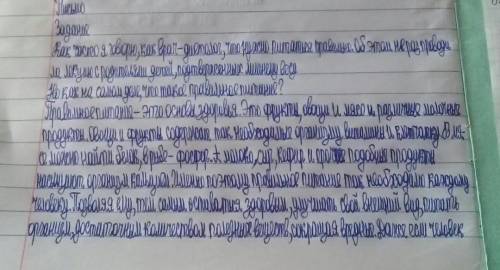 Письмо
Задание
Как часто я говорю, как врач-диетолог, что нужно питаться правильно. Об этом не раз проводи
ла лекции с родителями детей, подтверженные лишнему весу
Но как на самом деле, что такое правильное питание?
Правильное питание - это основа здоровья. Это фрукты, овощи и мясо и различные молочные
продукты. Овощи и фрукты содержат так необходимые организму витамины и клетчатку. В мя-
се можно найти белок, в рыбе - фосфор. А молоко, сыр, кефир и прочие подобные продукты
насыщают организм кальцием. Именно поэтому правильное питание так необходимо каждому
человеку. Позволяя ему, тем самым оставаться здоровым, улучшать свой внешний вид, питать
организм, достаточным количеством полезных веществ, сокращая вредные. Даже если человек